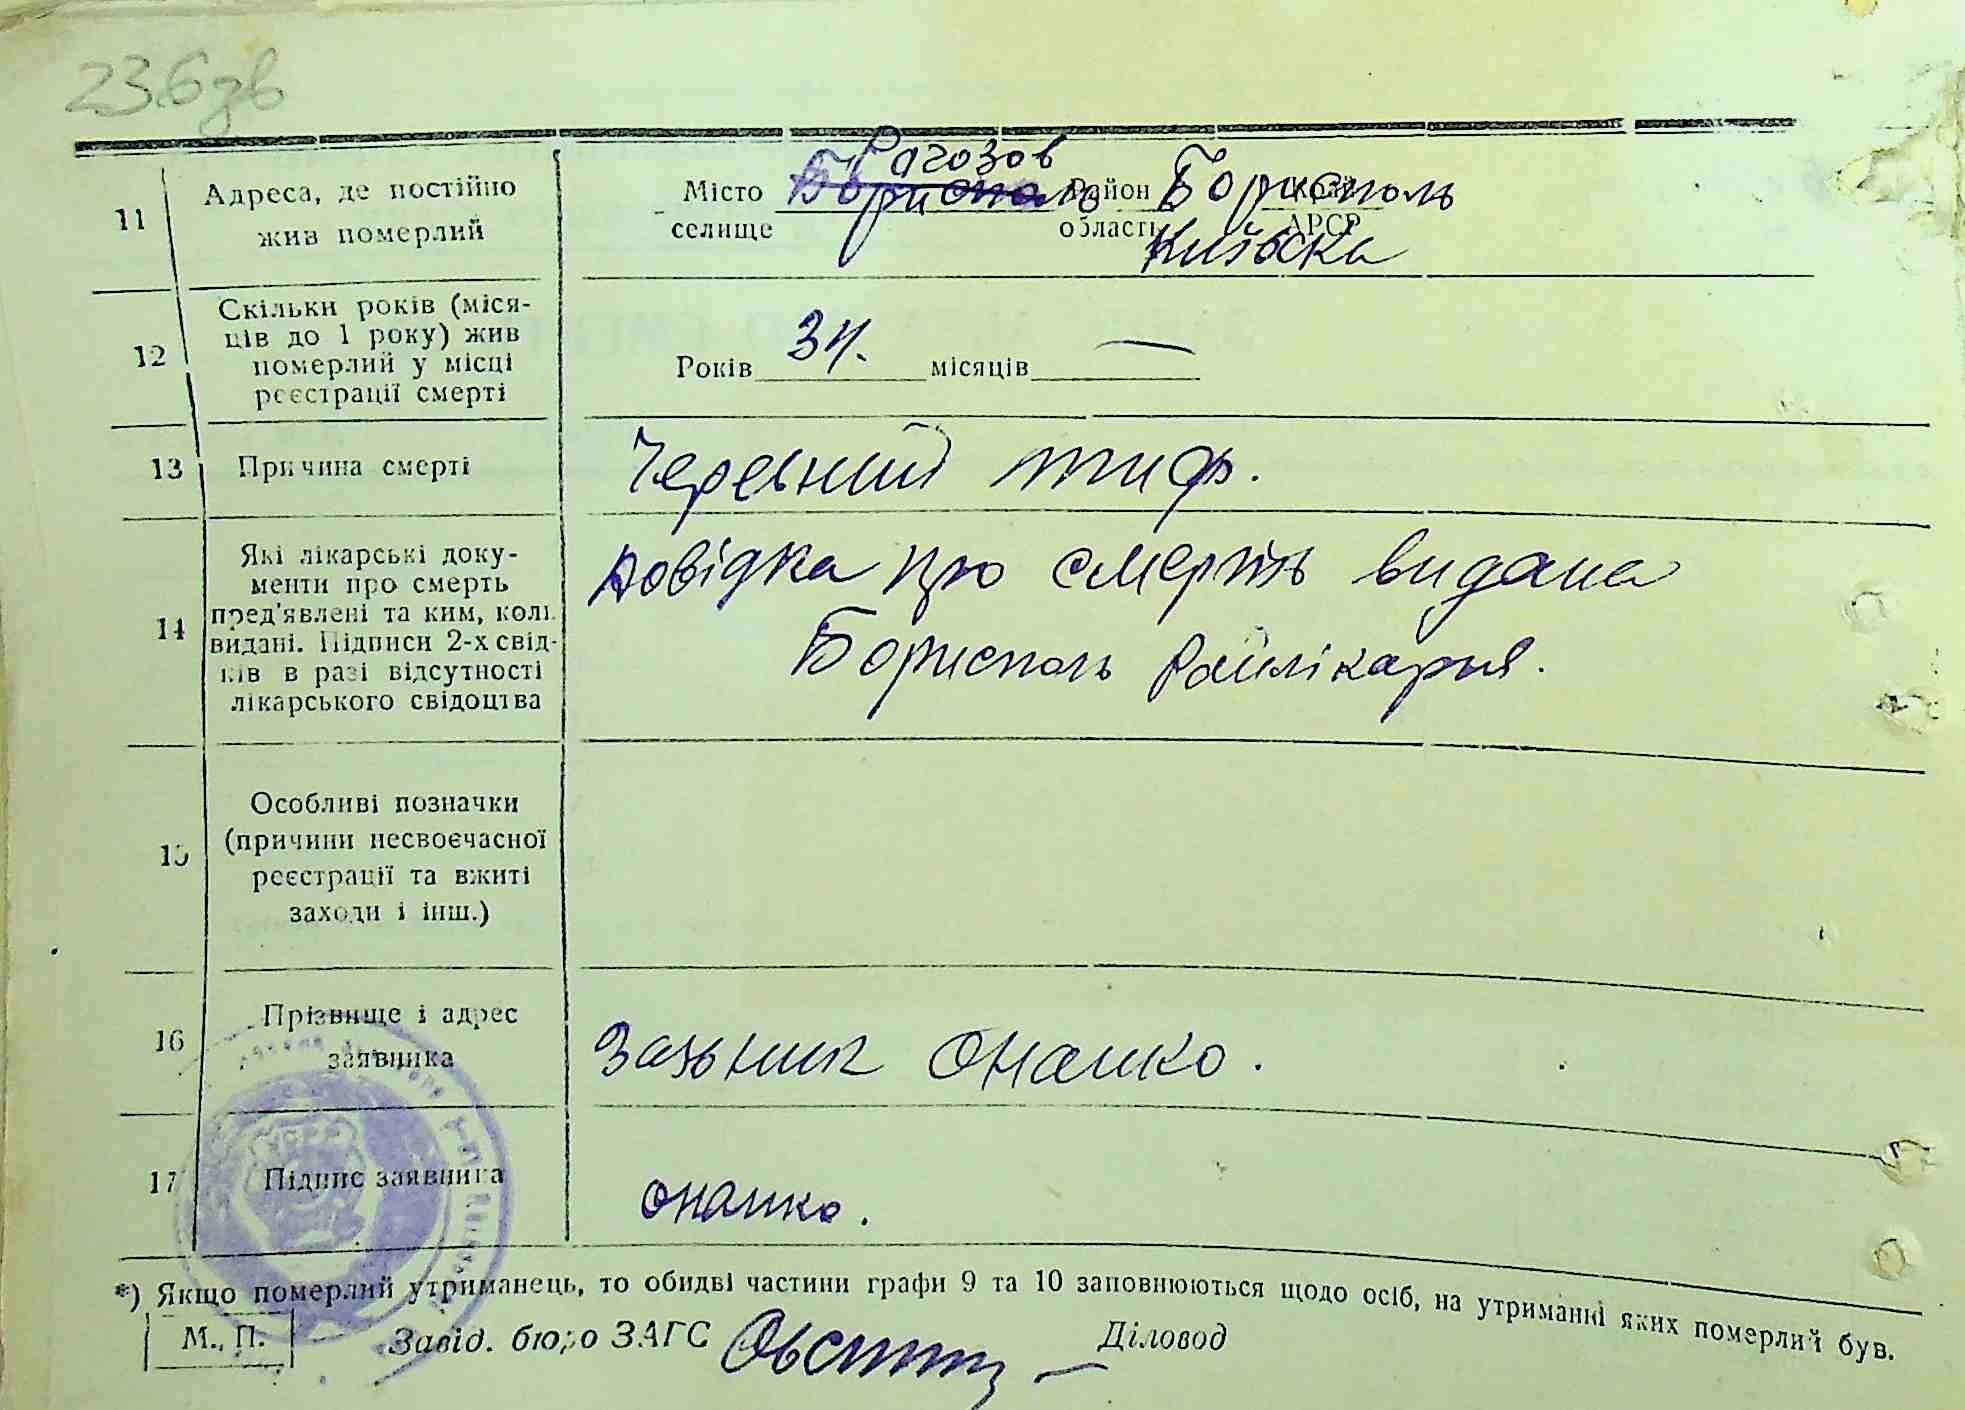 236зв
11
Адреса, де постійно
жив померлий
Місто
селище
Рагозов
Бориспіль
Район
області
Бориспіль
край
АРСР
Київська
12
Скільки років (міся-
ців до 1 року) жив
померлий у місці
реєстрації смерті
Років 34. місяців —
13
Причина смерті
Черевний тиф.
14
Які лікарські доку-
менти про смерть
пред'явлені та ким, коли
видані. Підписи 2-х свід-
ків в разі відсутності
лікарського свідоцтва
Довідка про смерть видана
Бориспіль Райлікарня.
15
Особливі позначки
(причини несвоєчасної
реєстрації та вжиті
заходи і інш.)
16
Прізвище і адрес
заявника
Онанко.
17
Підпис заявника
Онанко.
*) Якщо померлий утриманець, то обидві частини графи 9 та 10 заповнюються щодо осіб, на утриманні яких померлий був.
М. П.
Завід. бюро ЗАГС
Діловод